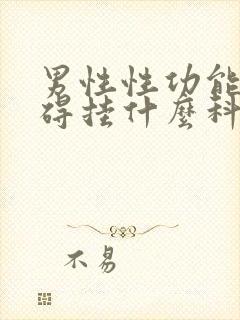 男性性功能
碍挂什麼科
不易